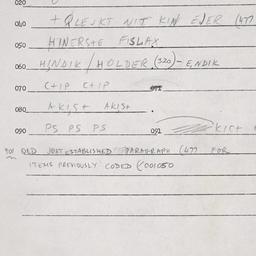 020
040 + QLEJKT NIT KIN EJER (477
050 HINERSTE FISLAX
060 HINDIK / HOLDER (320) - ENDIK
070 C+IP C+IP 072
080 AKIS+ AKIS+
090 PS PS PS 091 KIS+
901 OLD JUST ESTABLISHED PARAGRAPH (477 FOR
ITEMS PREVIOUSLY CODED (001050